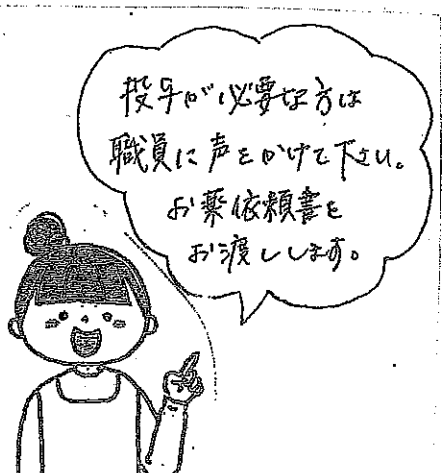 投与が必要な方は
職員に声をかけて下さい。
お薬依頼書を
お渡しします。